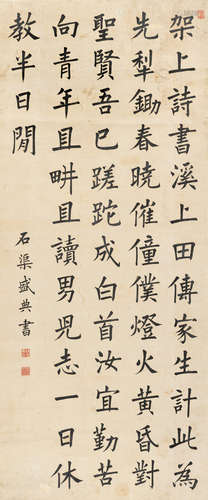 架上詩書溪上田傳家生計此為
先犁鋤春曉催僮僕燈火黃昏對
聖賢吾已蹉跎成白首汝宜勤苦
向青年且畊且讀男児志一日休
教半日閒
石渠盛典書